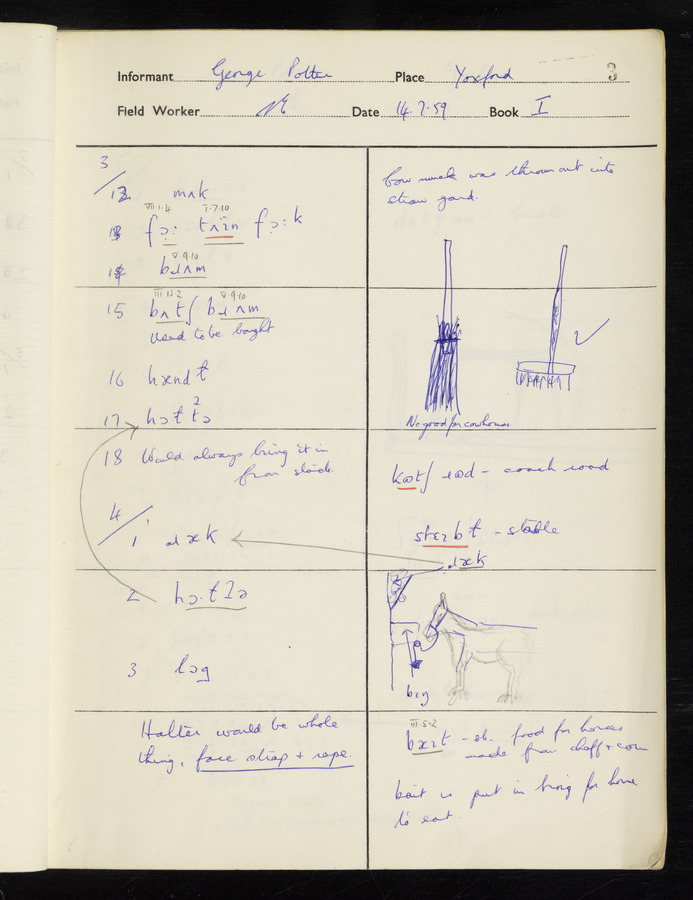 Informant George Potter Place Yoxford 3
Field Worker Date 14.7.59 Book I
3/
12 mʌk
VII.1.4 I.7.10
13 fɔ: fɔ:k
V.9.10
14 bɹɪʌm
III.12.2 V.9.10
15 bʌtʃ
used to be bought
16 hænd
17 hɔt
18 Would always bring it in
from stack
4/
1 ɹæk
2
3 lɔg
Halter would be whole
thing, face strap + rope.
Cow muck was thrown out into
straw yard.
No good for cowhouse
- coach road
- stable
ɹæk
bɪŋ
III.5.2
- sb. food for horses
made from chaff + corn
bait is put in bing for horse
to eat.